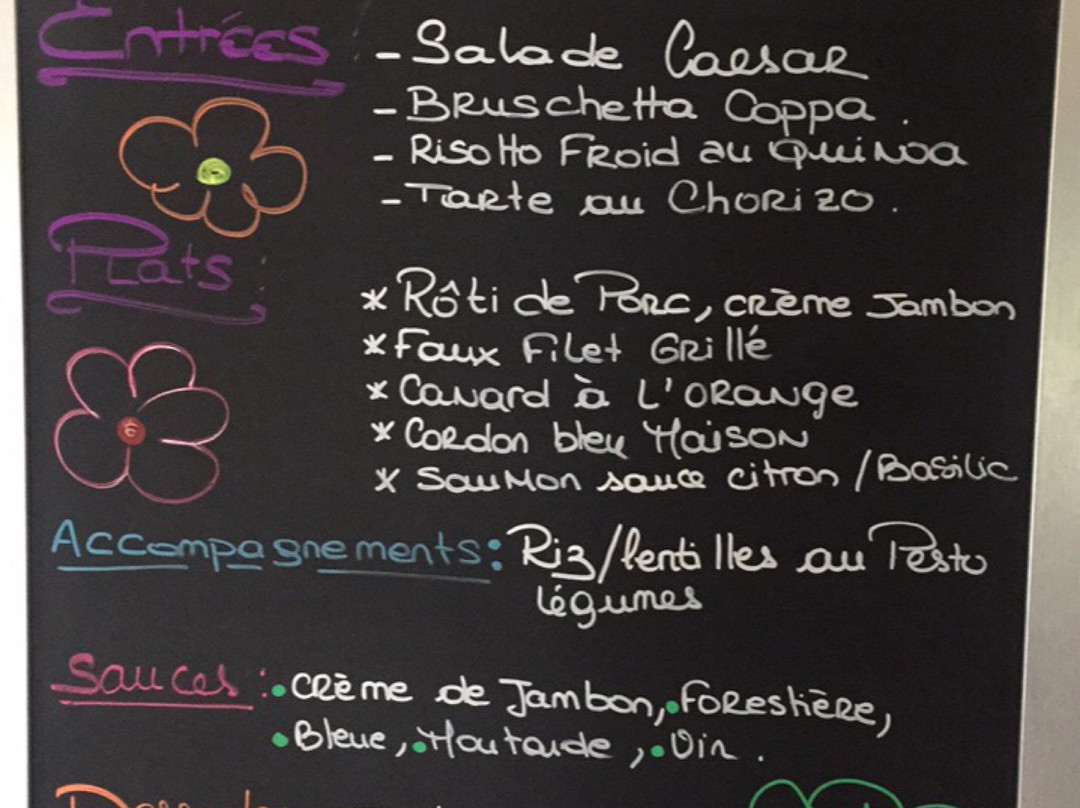 Entrées
- Salade Caesar
- Bruschetta Coppa .
- Risotto Froid au Quinoa
- Tarte au Chorizo .
Plats :
* Rôti de Porc, crème Jambon
* Faux Filet Grillé
* Canard à L'orange
* Cordon bleu Maison
* Saumon sauce citron / Basilic
Accompagnements: Riz/lentilles au Pesto
légumes
Sauces : • crème de Jambon, • Forestière,
• Bleue, • Moutarde, •